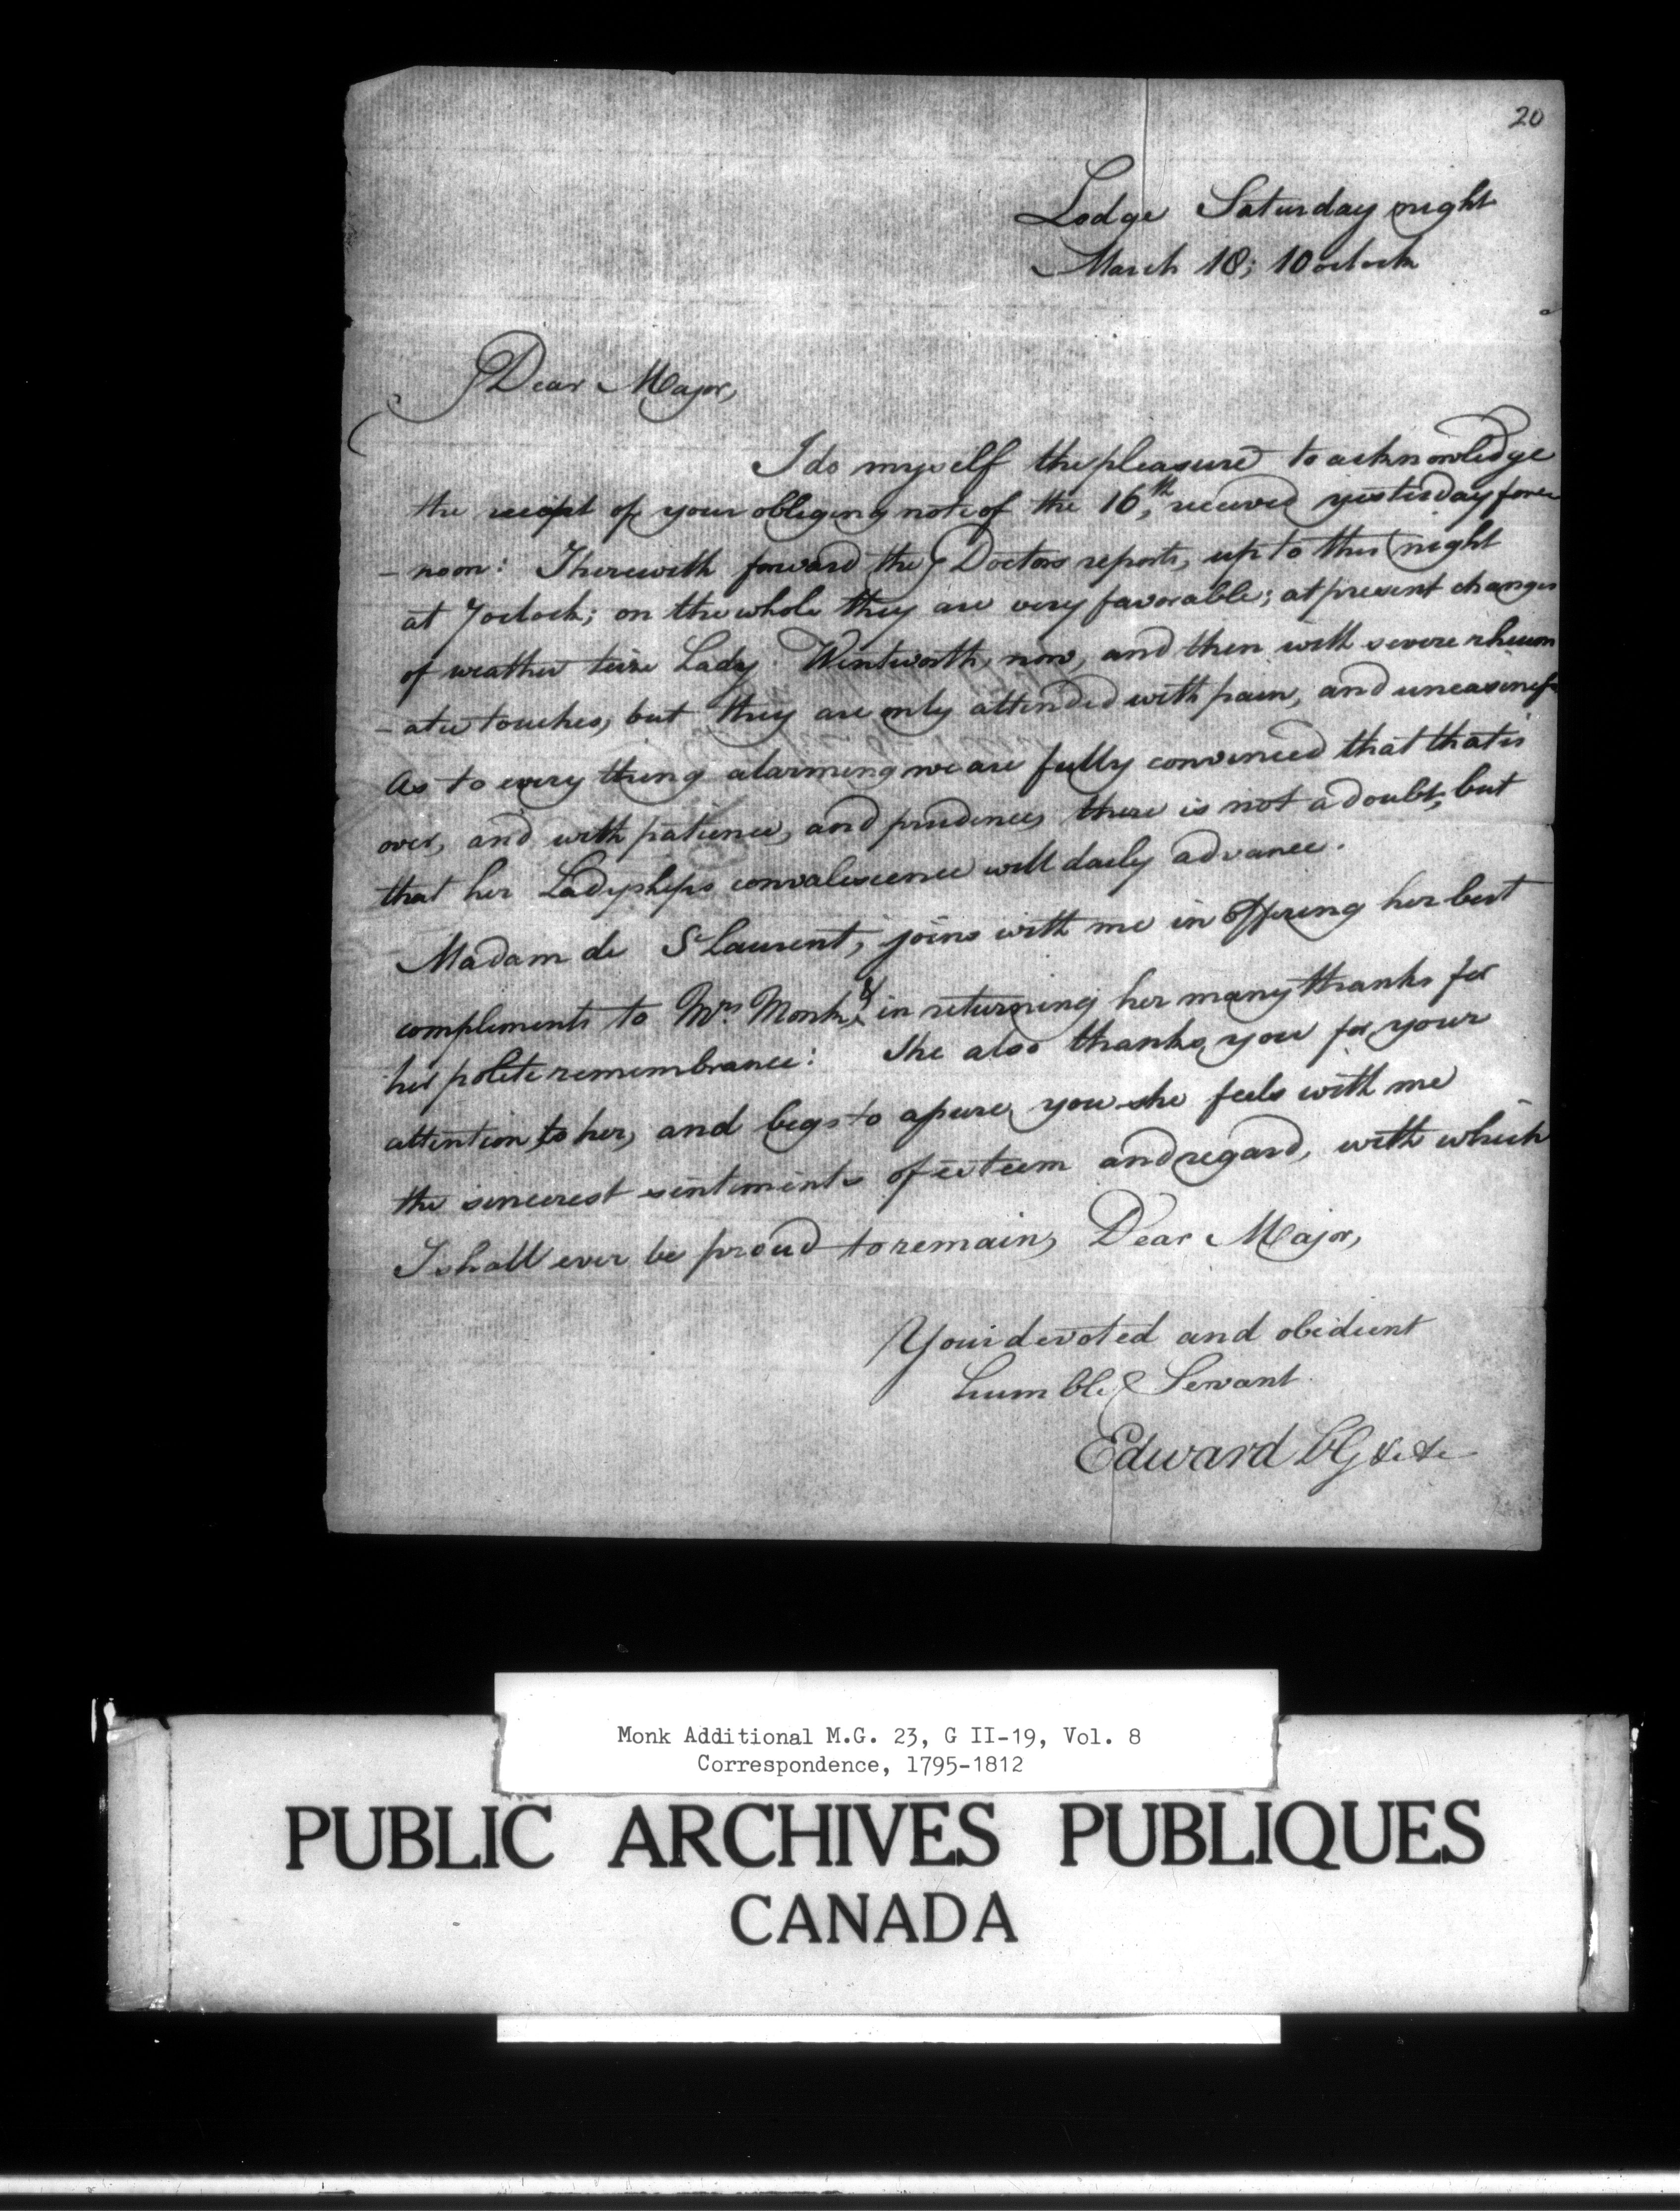 20
Lodge Saturday night
March 18; 10 oclock
Dear Major,
I do myself the pleasure to acknowledge
the reciept of your obliging note of the 16th, received yesterday fore
- noon: I herewith forward the Doctors reports, up to this night
at 7 oclock; on the whole they are very favorable; at present changes
of weather teize Lady Wentworth, now, and then with severe rheum
- atic touches, but they are only attended with pain, and uneasiness
As to every thing alarming we are fully convinced that that is
over, and with patience, and prudence, there is not a doubt, but
that her Ladyships convalescence will daily advance.
Madam de St Laurent, joins with me in offering her best
compliments to Mrs. Monk, & in returning her many thanks for
her polite remembrance: She also thanks you for your
attention to her, and begs to assure you she feels with me
the sincerest sentiments of esteem and regard, with which
I shall ever be proud to remain, Dear Major,
Your devoted and obedient
humble Servant
Edward LG &c &c
Monk Additional M.G. 23, G II-19, Vol. 8
Correspondence, 1795-1812
PUBLIC ARCHIVES PUBLIQUES
CANADA